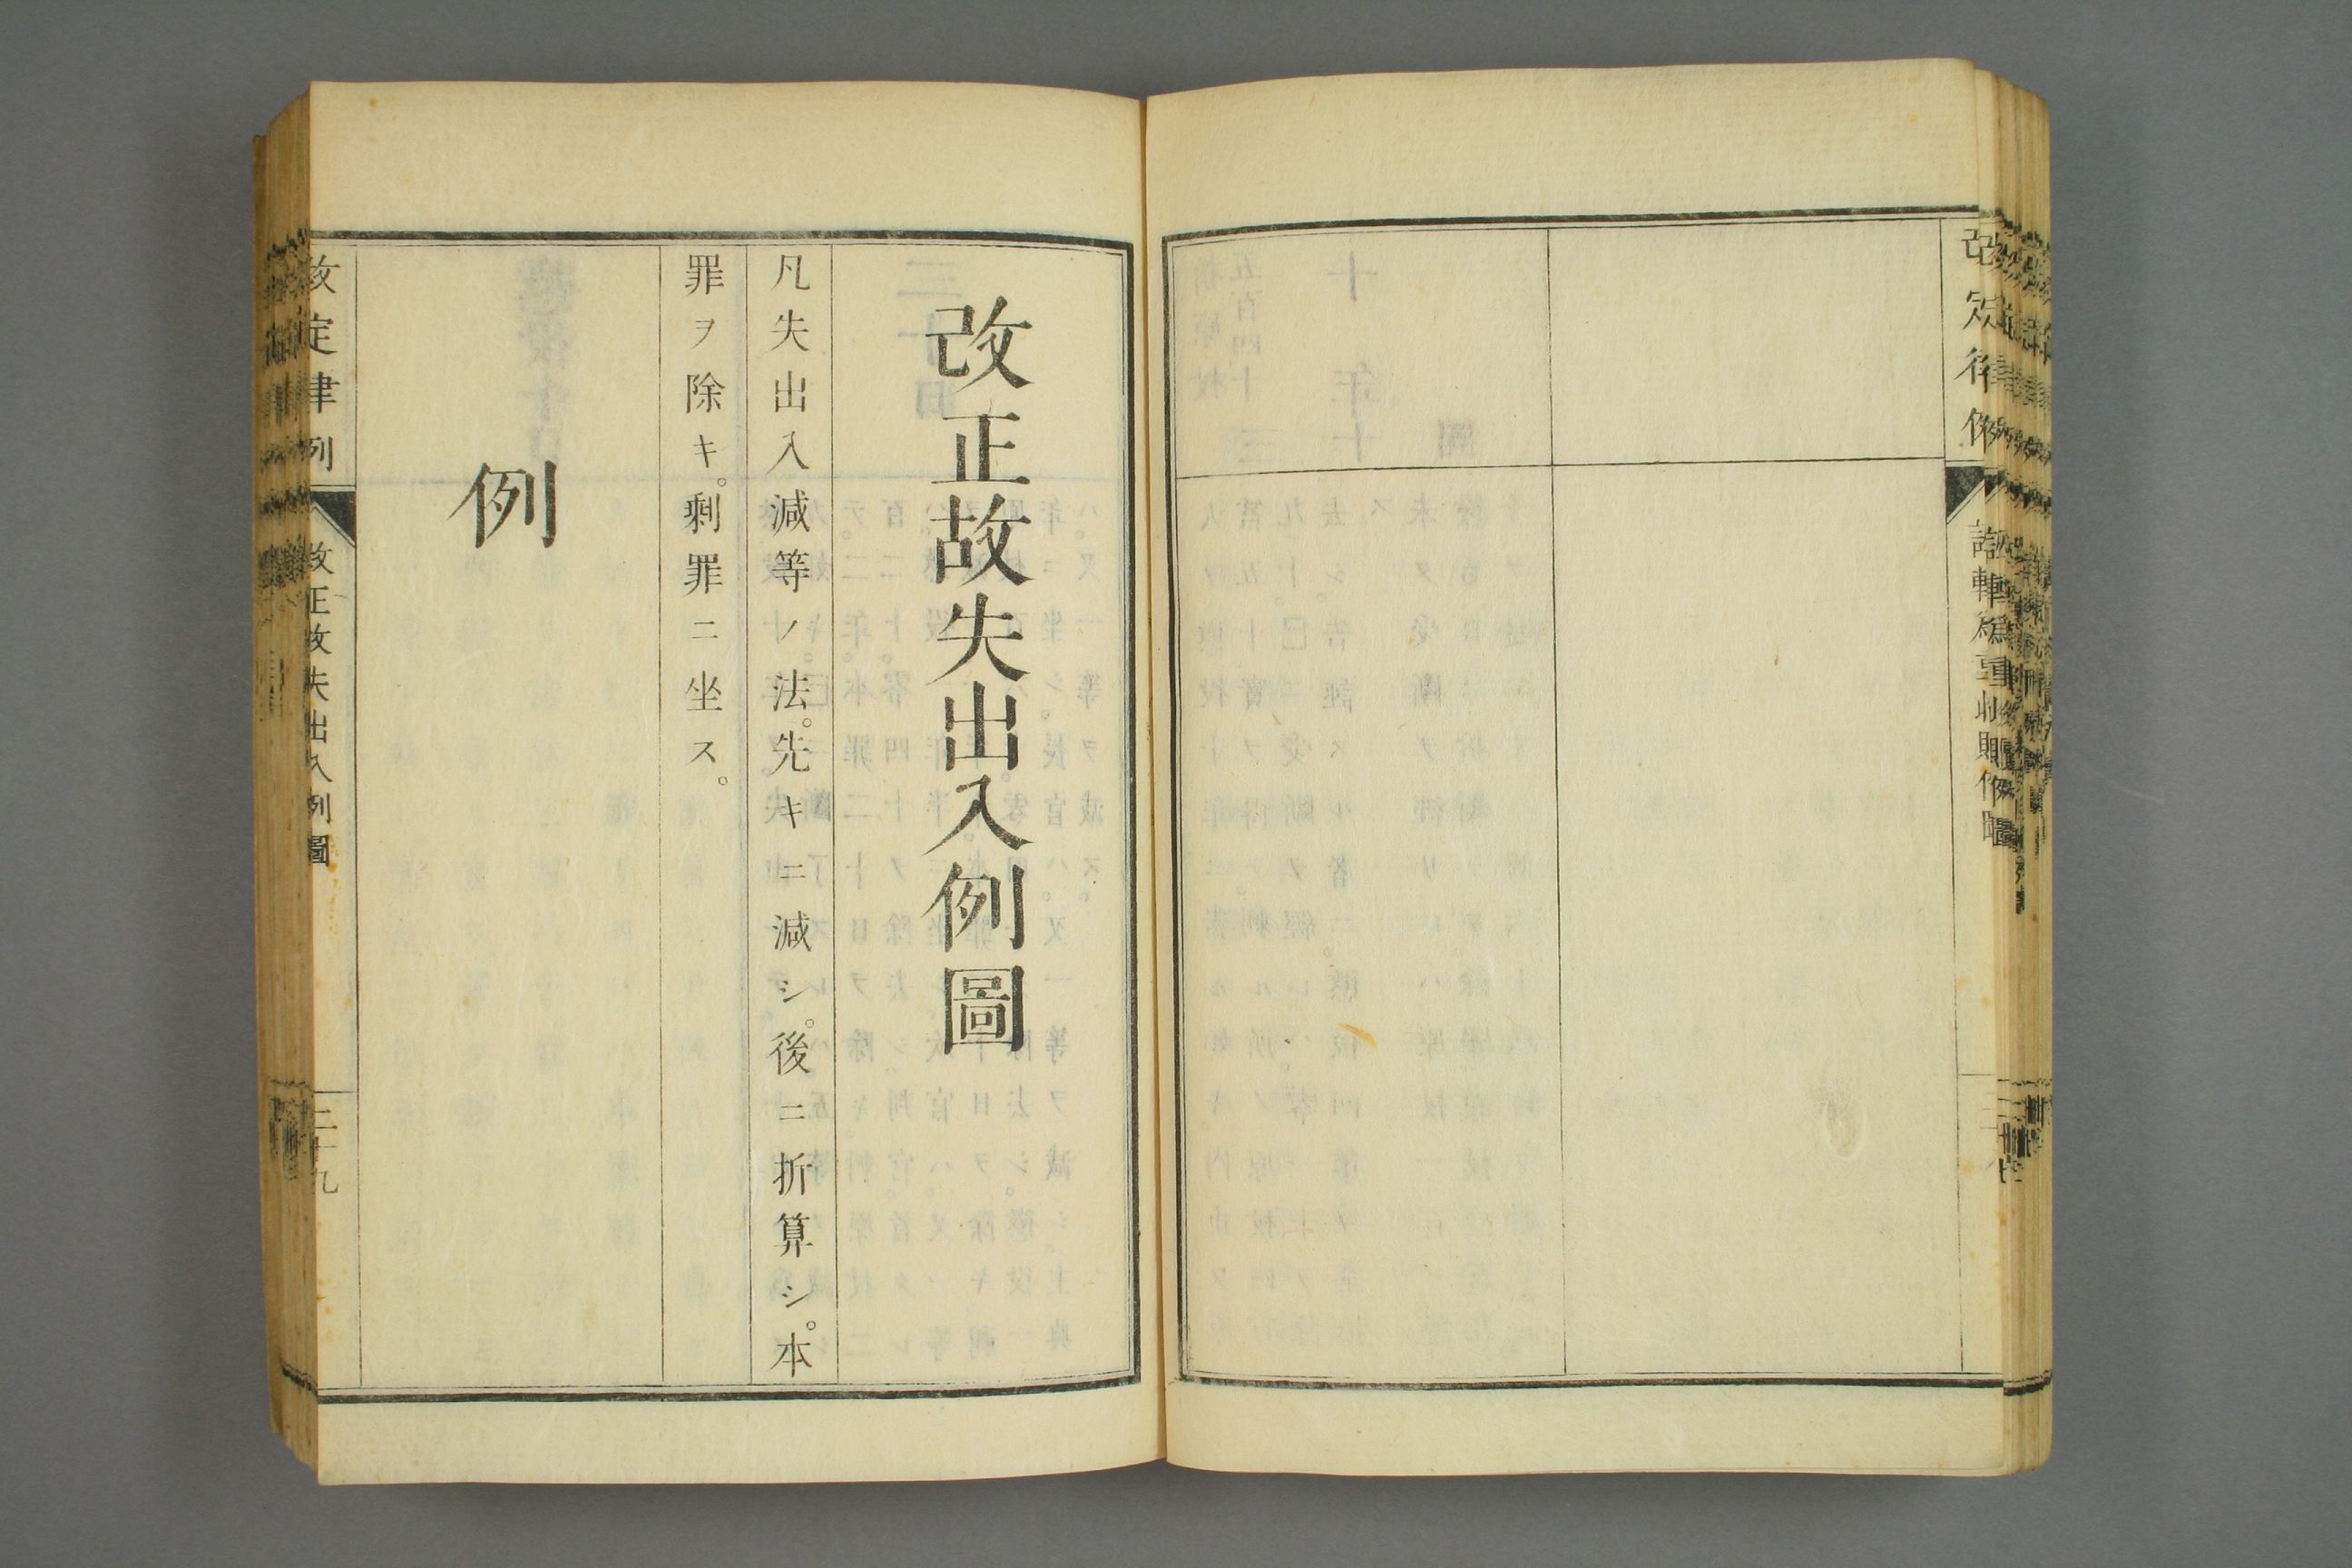 改定律例
改正故失出入例圖
凡失出入減等ノ法。先キニ減シ。後ニ折算シ。本
罪ヲ除キ。剰罪ニ坐ス。
例
改定律例
改正故失出入例圖
三十九